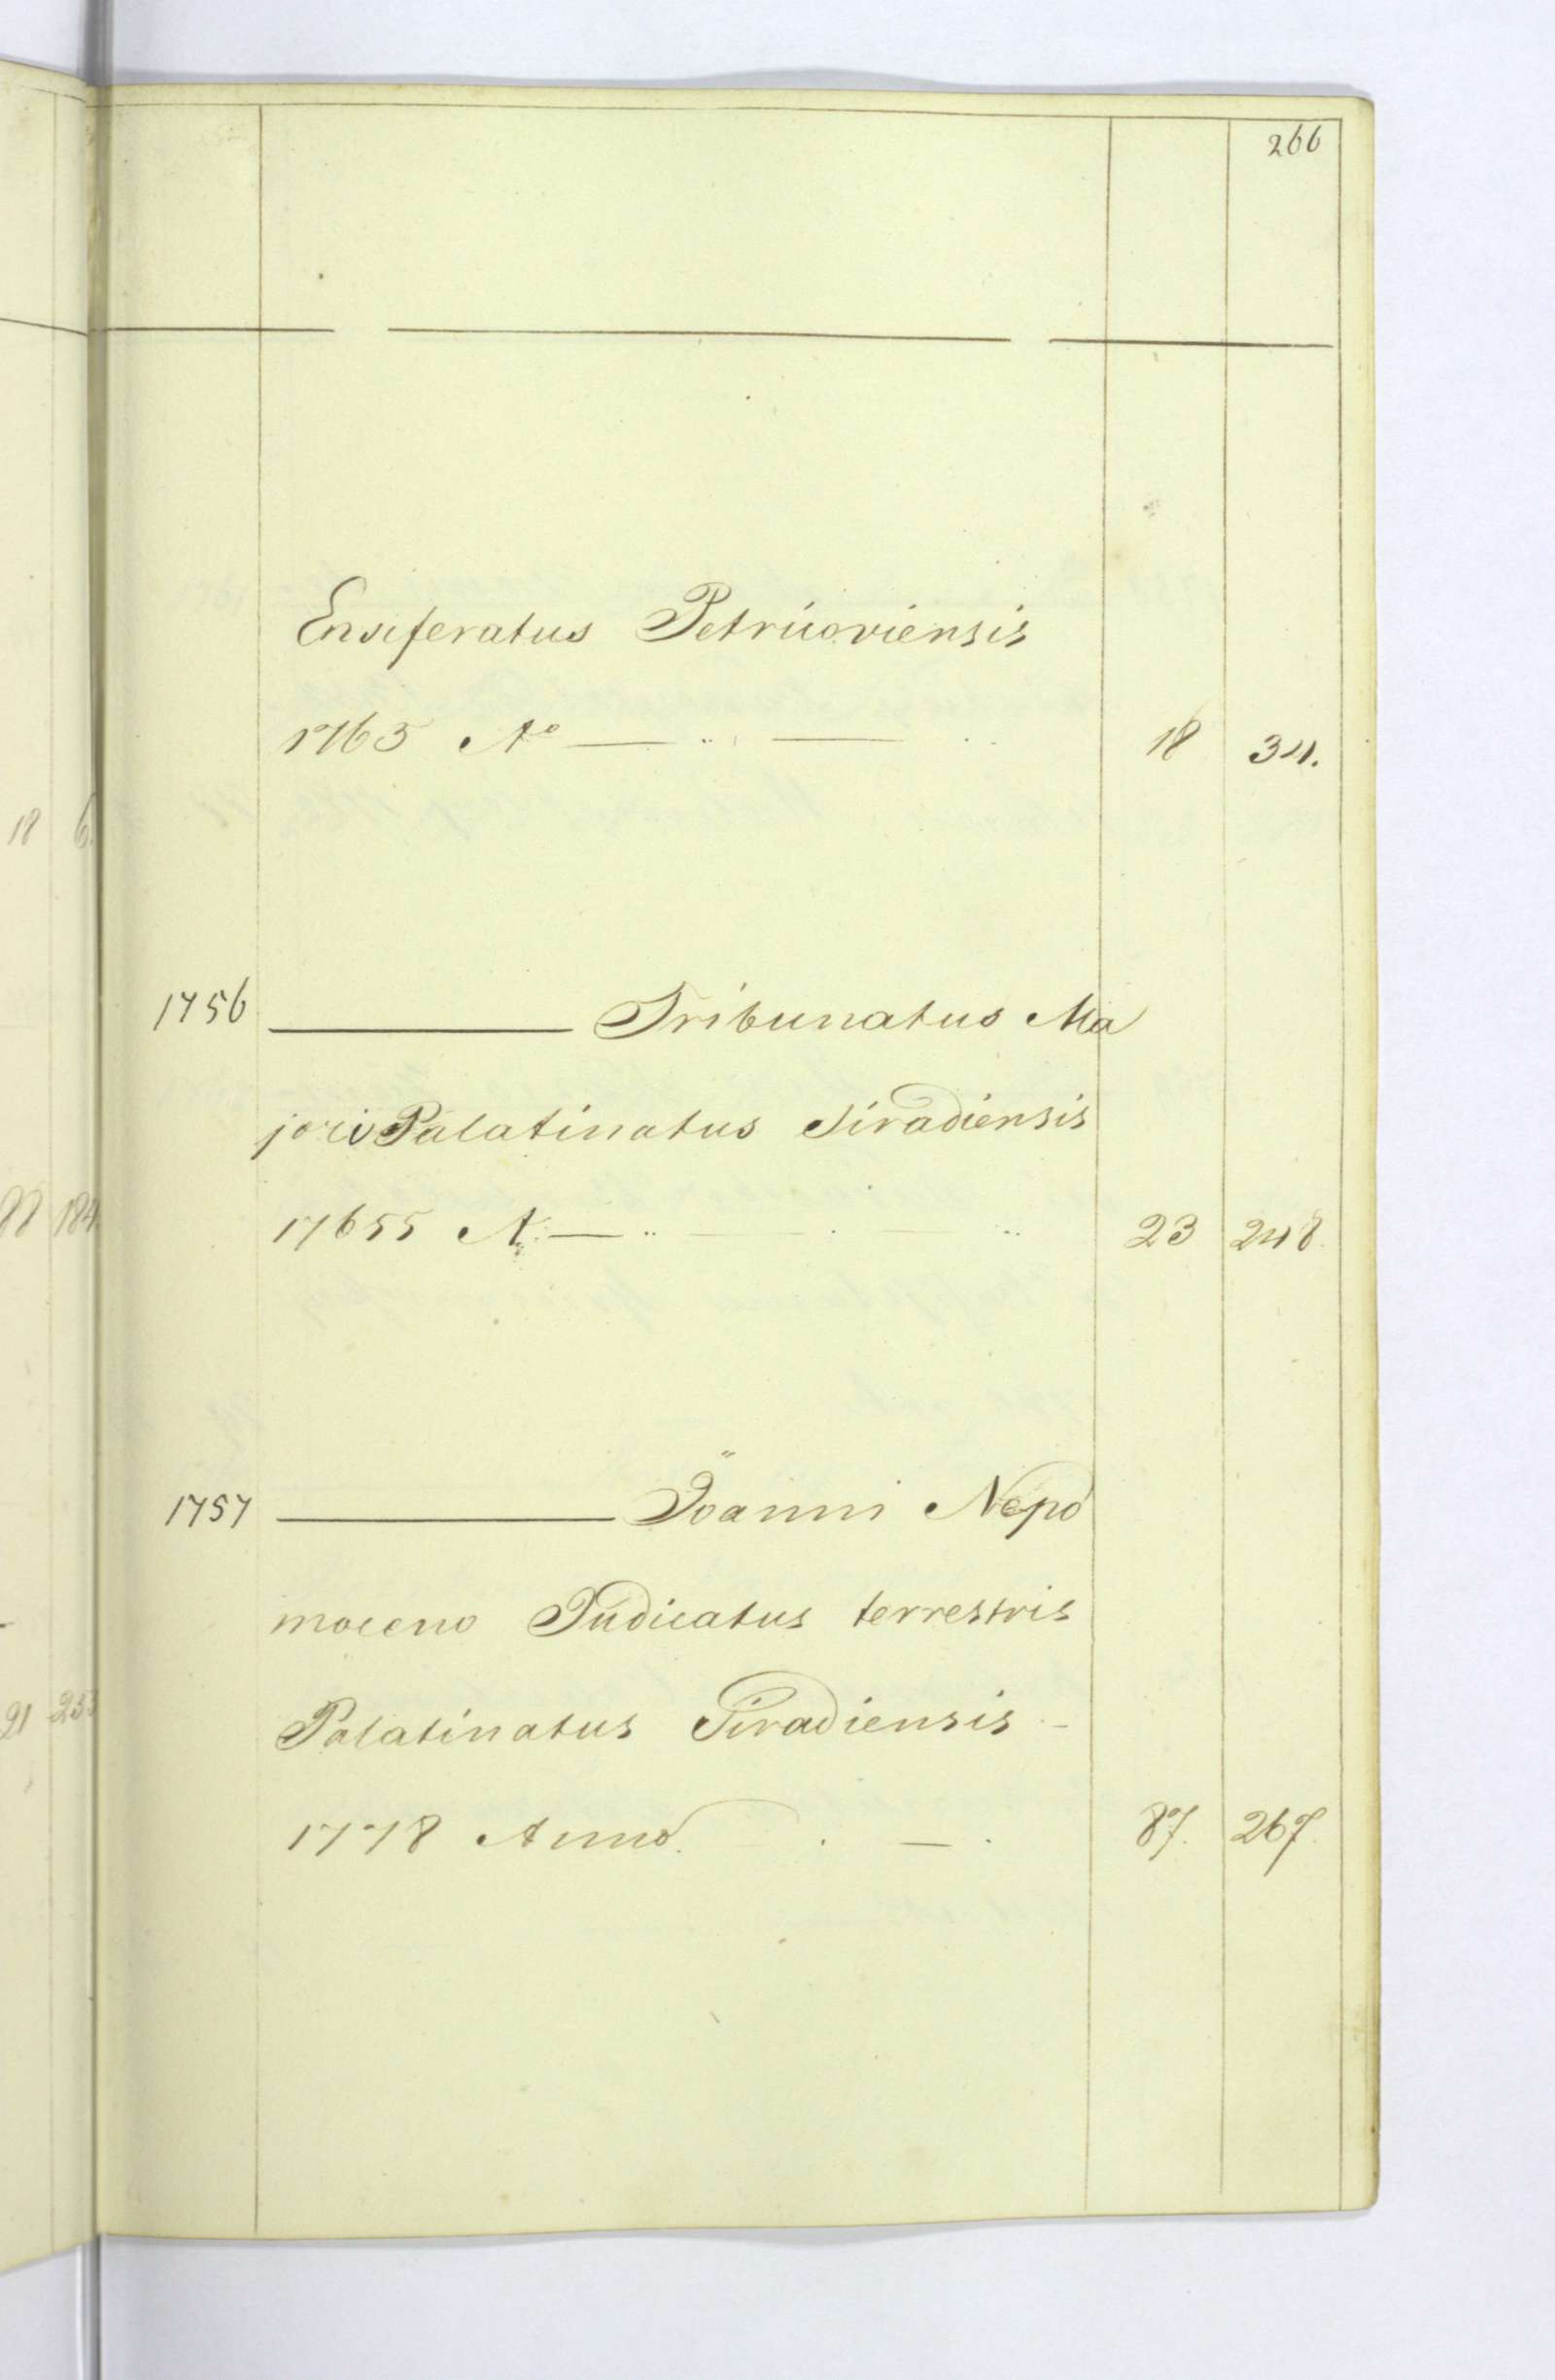 266
Ensiferatus Petricoviensis
1763 Aº — 18 34.
1756 — Tribunatus Ma
joris Palatinatus Siradiensis
17655 A. — 23 248.
1757 — Joanni Nepo
moceno Judicatus terrestris
Palatinatus Siradiensis -
1778 Anno. — 87. 267.
18 6.
184.
91